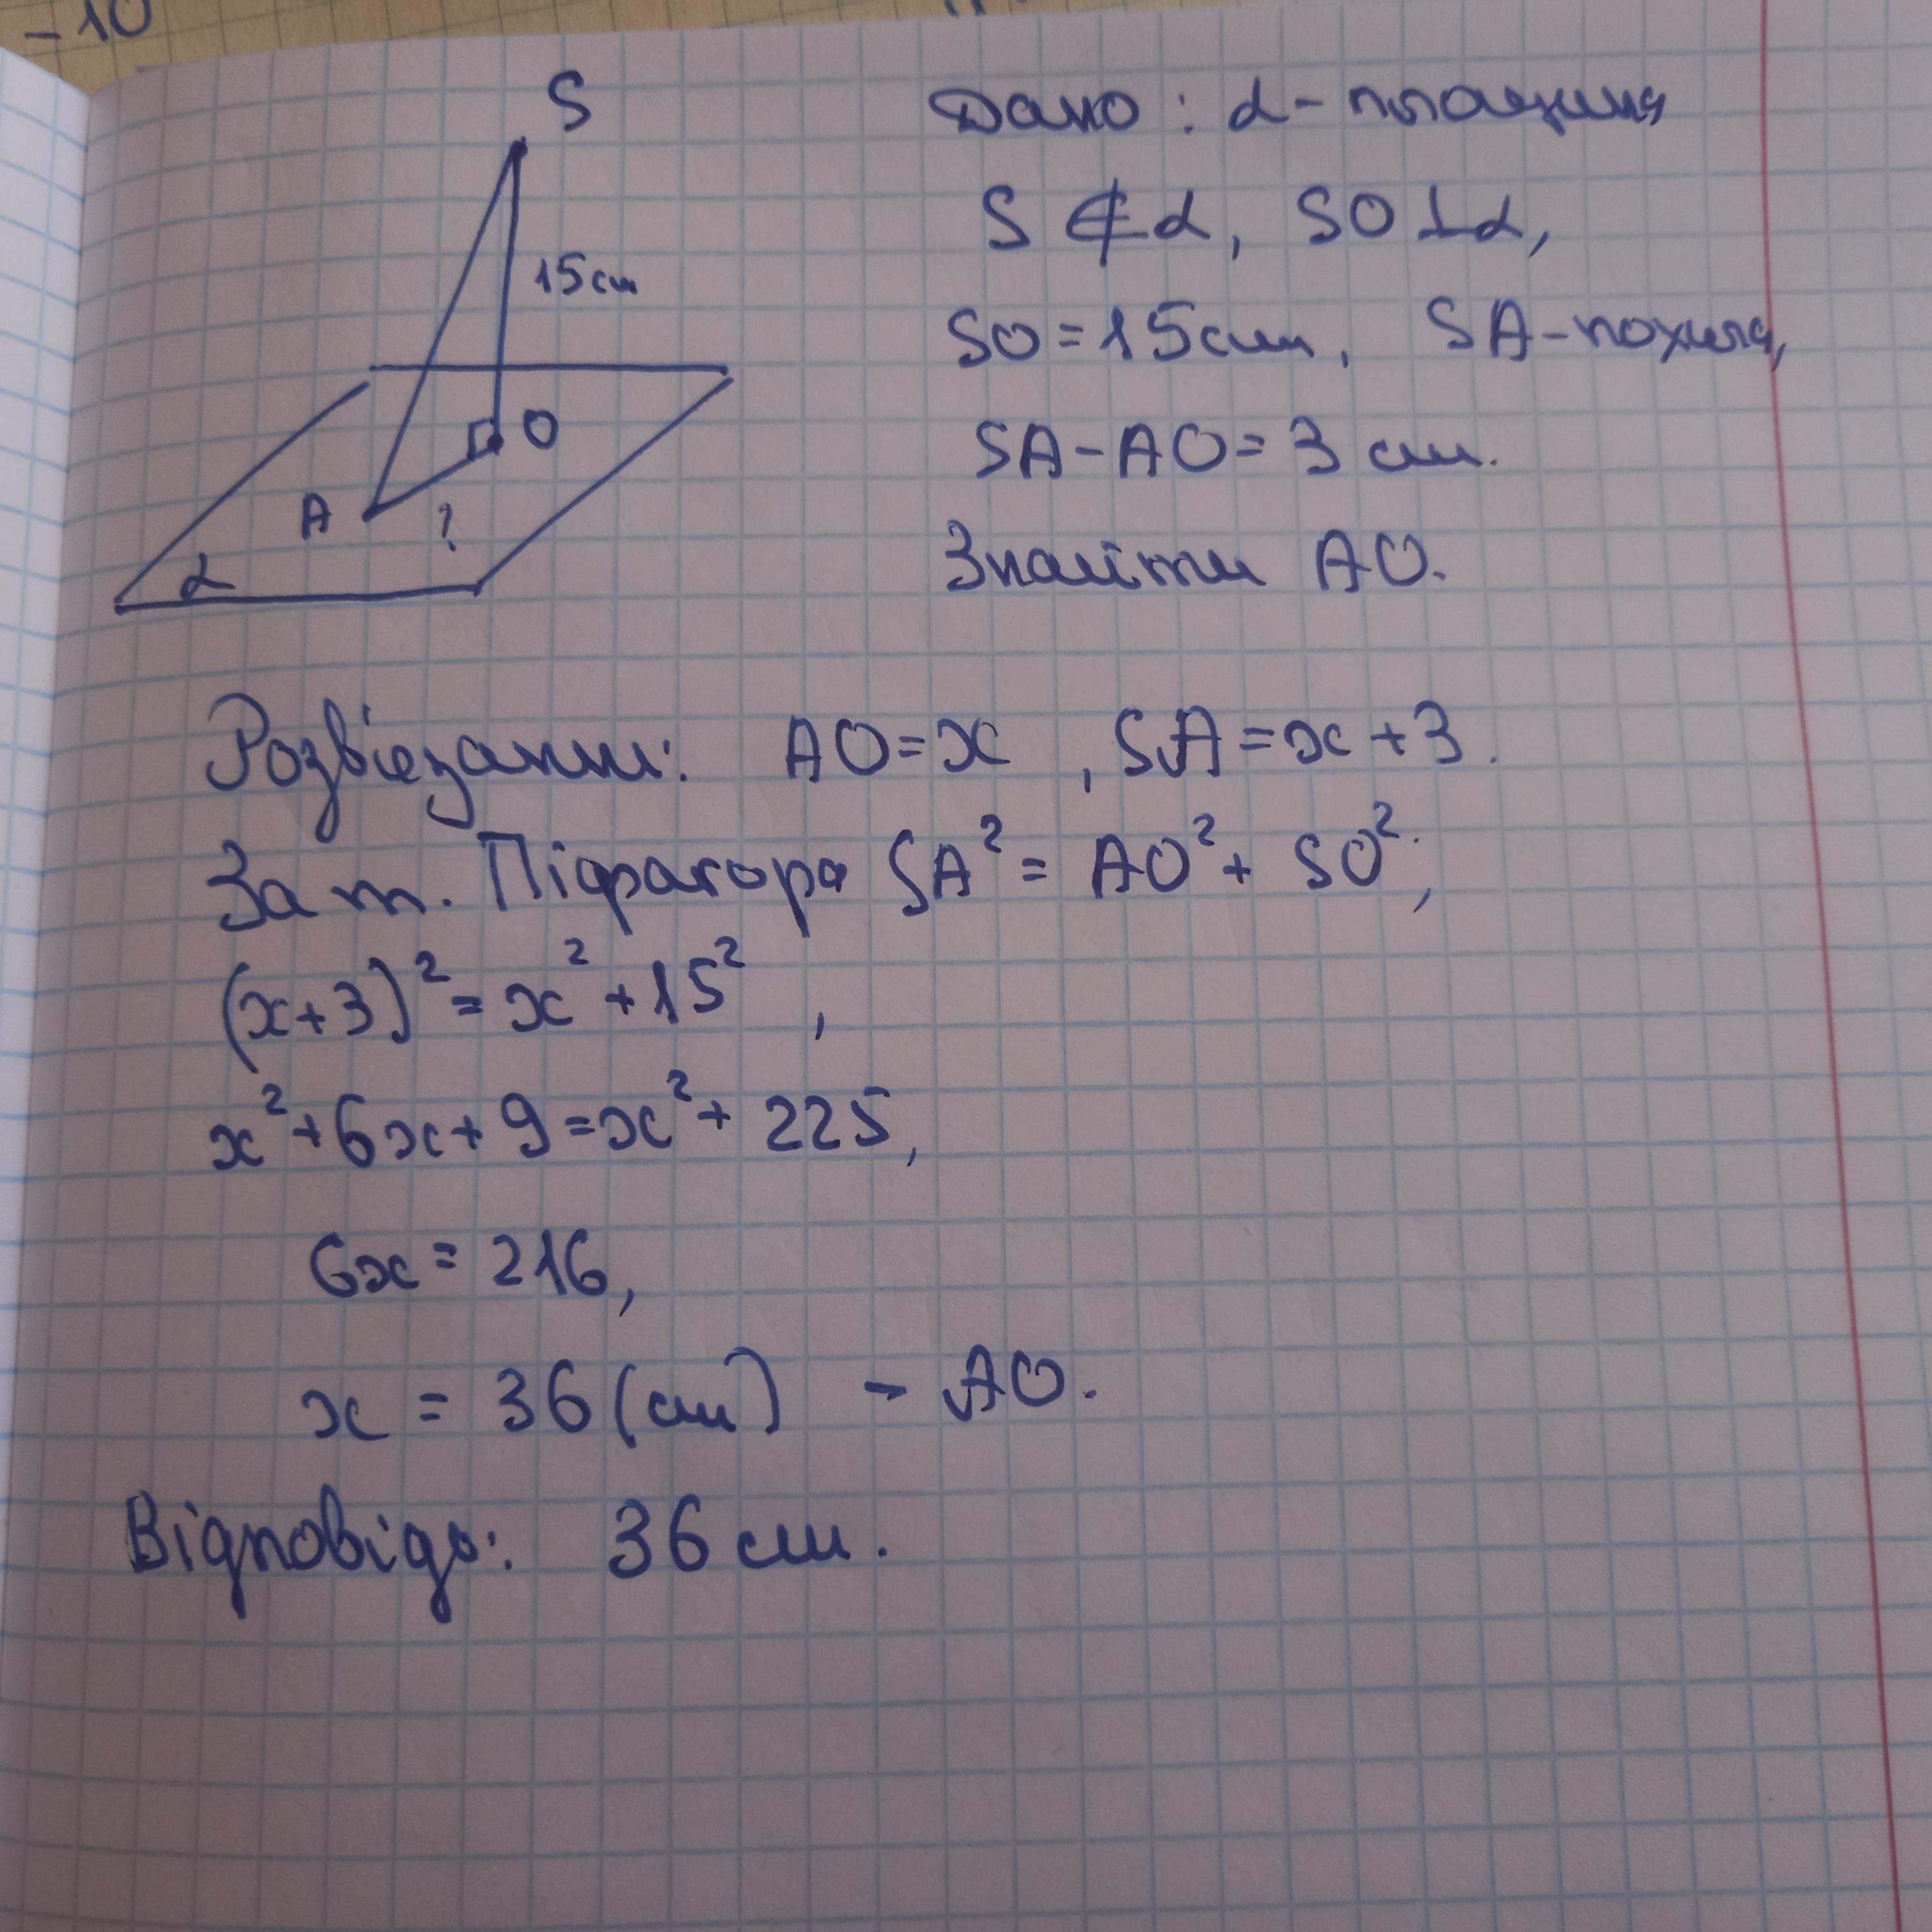 - 10
S
15 см
O
A
?
α
Дано: α - площина
S ⊄ α, SO ⊥ α,
SO = 15 см, SA - похила,
SA - AO = 3 см.
Знайти AO.
Розв'язання: AO = x, SA = x + 3.
За т. Піфагора SA² = AO² + SO²;
(x + 3)² = x² + 15²,
x² + 6x + 9 = x² + 225,
6x = 216,
x = 36 (см) - AO.
Відповідь: 36 см.